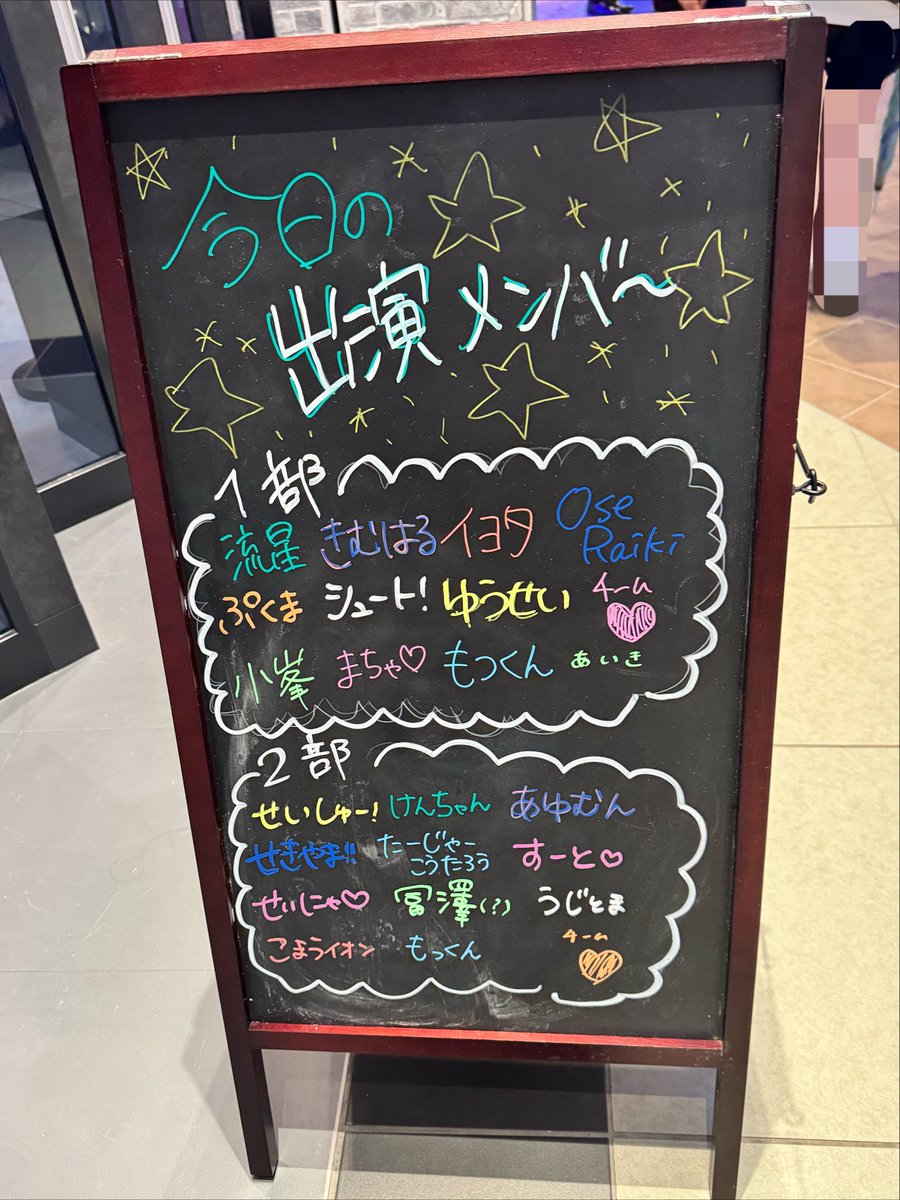 今日の
出演メンバー
1部
流星 きむはる イヨタ Ose Raiki
ぷくま シュート! ゆうせい チーム♡
小峯 まちゃ♡ もっくん あいき
2部
せいしゅー! けんちゃん あゆむん
せきやま!! たーじゃーこうたろう すーと♡
せいにゃ♡ 冨澤(?) うじとま
こまうイオン もっくん チーム♡